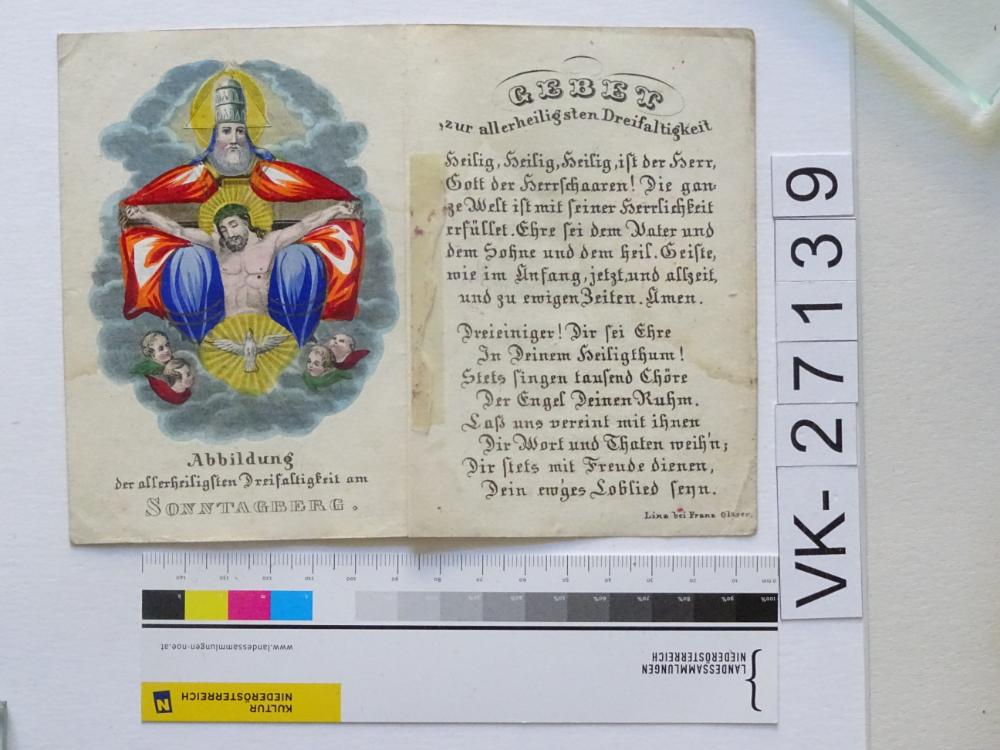 Abbildung
der allerheiligsten Dreifaltigkeit am
SONNTAGBERG.
GEBET
zur allerheiligsten Dreifaltigkeit
Heilig, Heilig, Heilig, ist der Herr,
Gott der Herrschaaren! Die gan-
ze Welt ist mit seiner Herrlichkeit
erfüllet. Ehre sei dem Vater und
dem Sohne und dem heil. Geiste,
wie im Anfang, jetzt, und allzeit,
und zu ewigen Zeiten. Amen.
Dreieiniger! Dir sei Ehre
In Deinem Heiligthum!
Stets singen tausend Chöre
Der Engel Deinen Ruhm.
Laß uns vereint mit ihnen
Dir Wort und Thaten weih'n;
Dir stets mit Freude dienen,
Dein ew'ges Loblied seyn.
Linz bei Franz Glaser.
VK-27139
www.landessammlungen-noe.at
LANDESSAMMLUNGEN
NIEDERÖSTERREICH
KULTUR
NIEDERÖSTERREICH
N